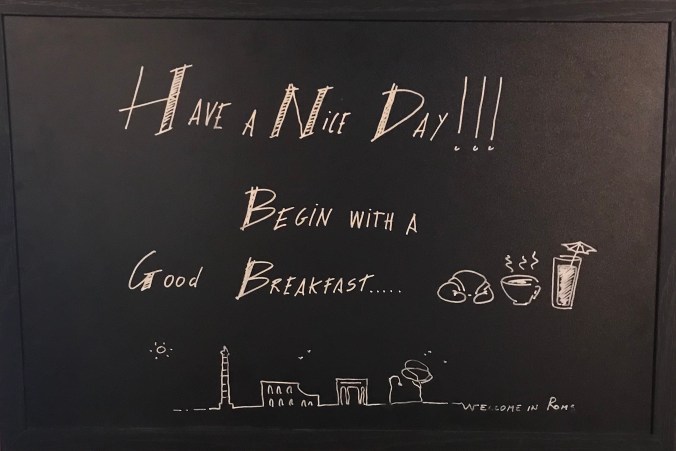 Have a Nice Day!!!
Begin with a
Good Breakfast.....
Welcome in Rome